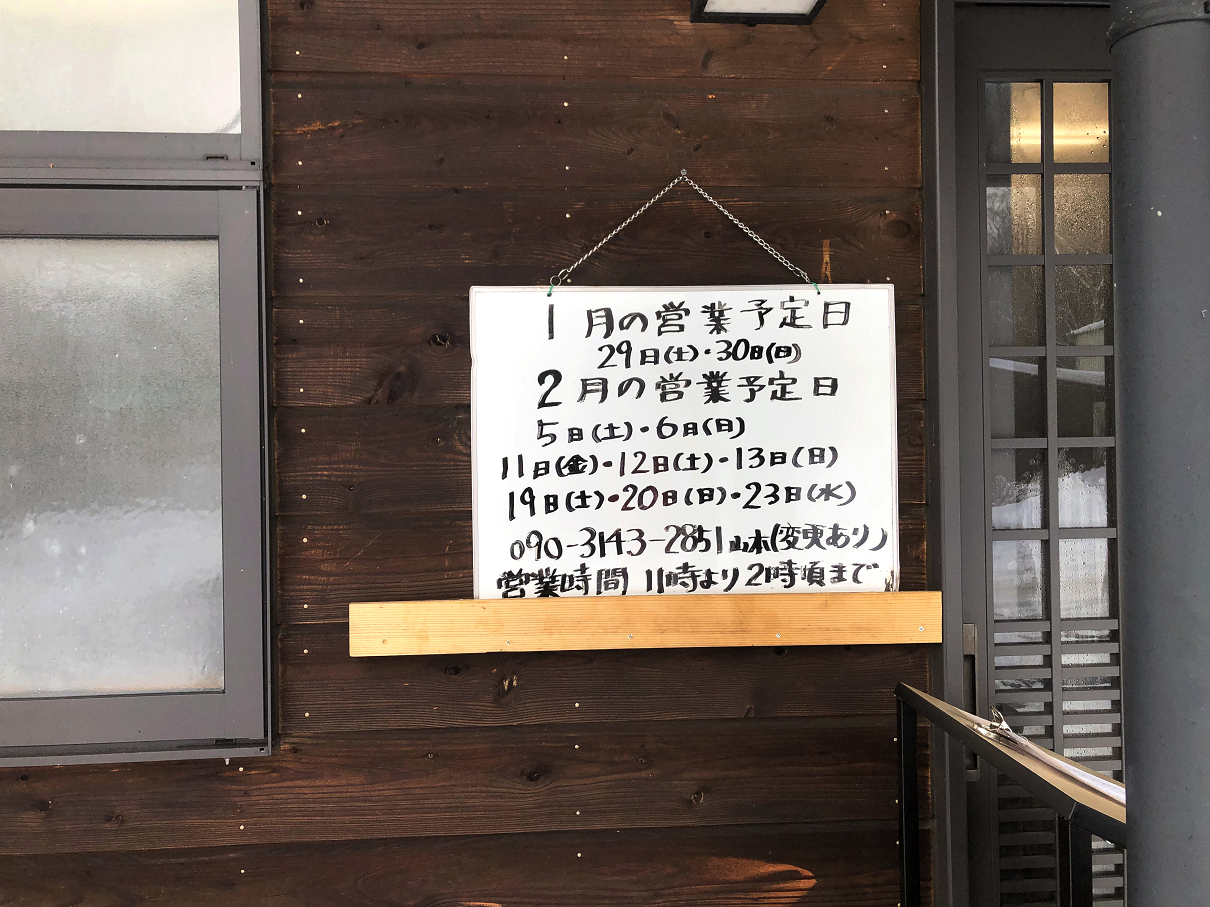 1月の営業予定日
29日(土)・30日(日)
2月の営業予定日
5日(土)・6日(日)
11日(金)・12日(土)・13日(日)
19日(土)・20日(日)・23日(水)
090-3143-2851山本(変更あり)
営業時間 11時より2時頃まで